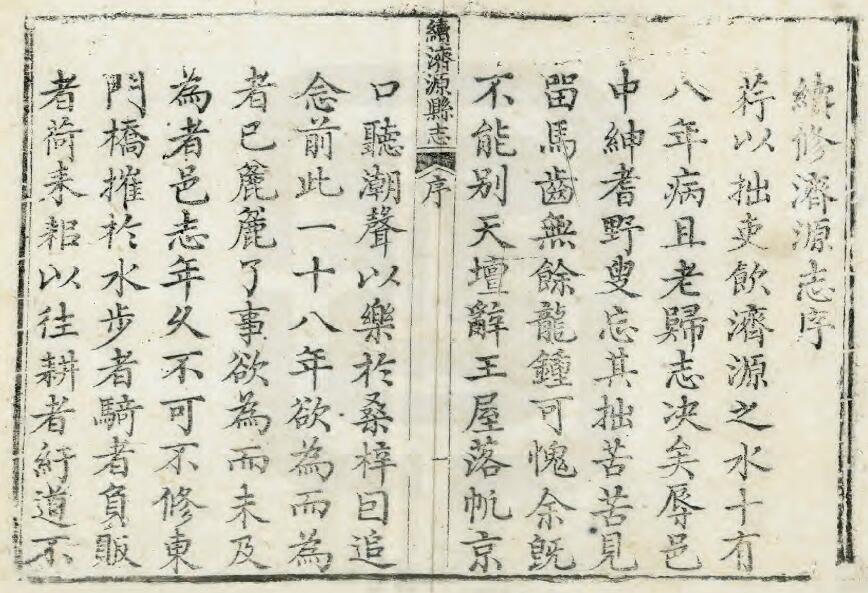 續修濟源志序
荇以拙吏飲濟源之水十有
八年病且老歸志决矣辱邑
中紳耆野叟忘其拙苦苦見
畱馬齒無餘龍鍾可愧余旣
不能别天壇辭王屋落帆京
續濟源縣志
序
一
口聽潮聲以樂於桑梓回追
念前此一十八年欲為而為
者已麄麄了事欲為而未及
為者邑志年久不可不修東
門橋摧於水步者騎者負販
者荷耒耜以徃耕者紆道不